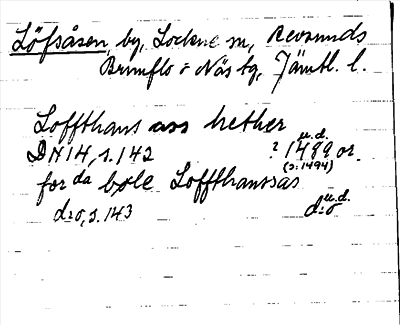 Löfsåsen, by, Lockne sn, Revsunds
Brunflo o Näs tg, Jämtl. l.
Loffthans ass hether
u.d.
DN 14, s. 142 ? 1489 or.
(s: 1494)
for da bole Loffthanssas
u.d.
d:o, s. 143 d:o